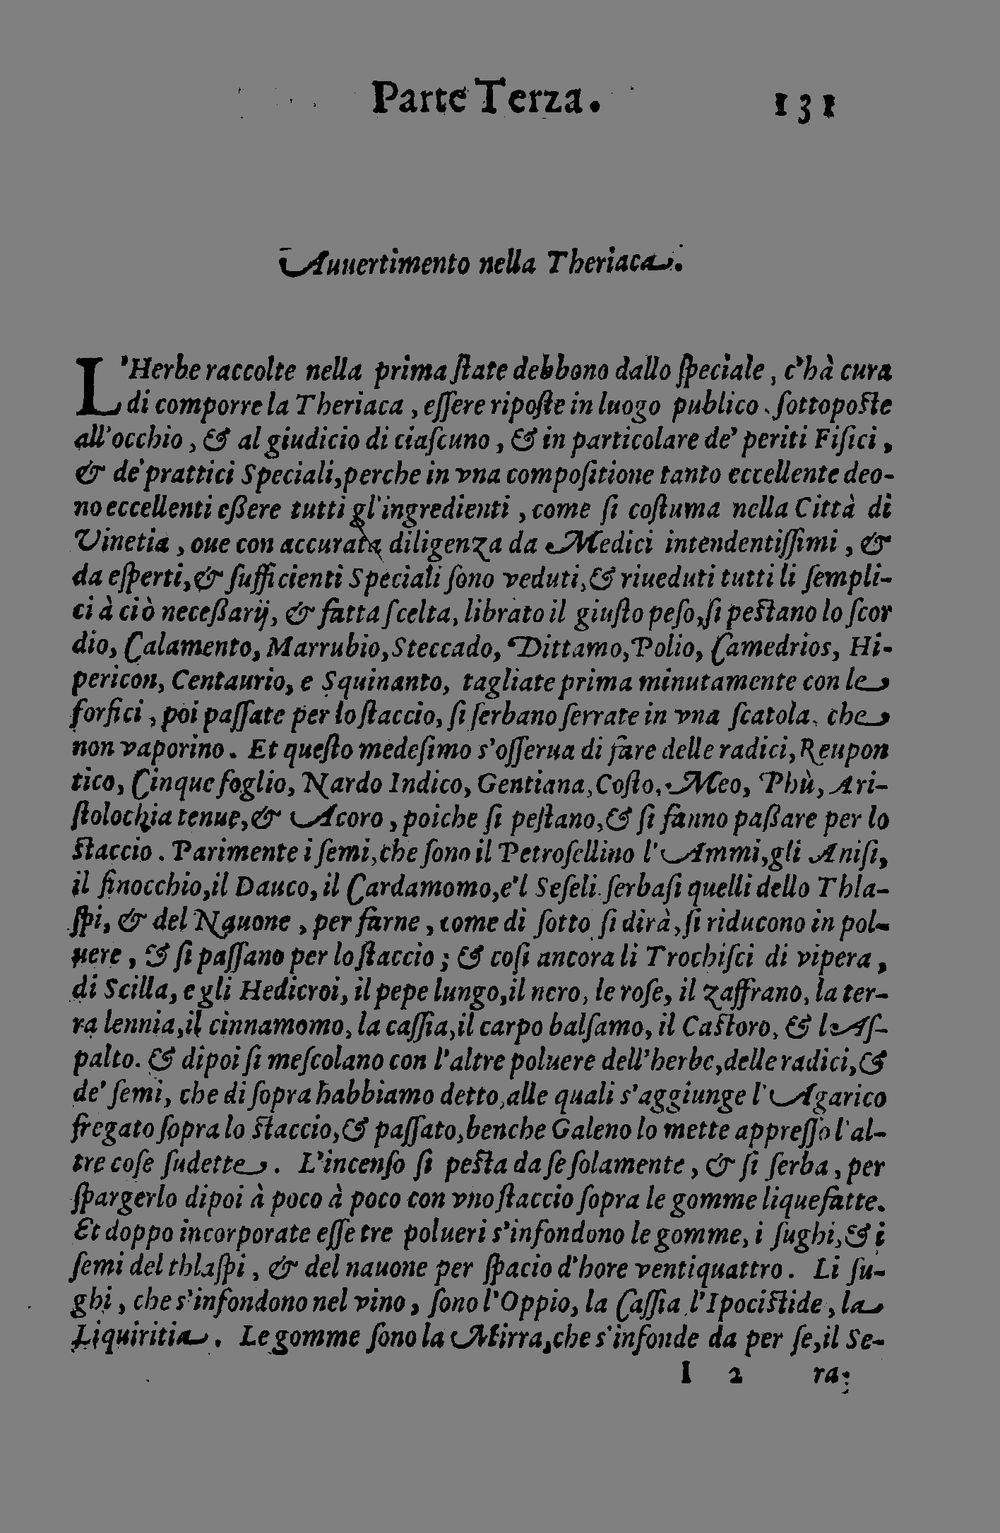 Parte Terza. 131
Auuertimento nella Theriaca.
L'Herbe raccolte nella prima ſtate debbono dallo ſpeciale, c'hà cura
di comporre la Theriaca, eſſere ripoſte in luogo publico. ſottopoſte
all'occhio, & al giudicio di ciaſcuno, & in particolare de' periti Fiſici,
& de' prattici Speciali, perche in vna compoſitione tanto eccellente deo-
no eccellenti eßere tutti gl'ingredienti, come ſi coſtuma nella Città di
Vinetia, oue con accurata diligenza da Medici intendentiſſimi, &
da eſperti, & ſufficienti Speciali ſono veduti, & riueduti tutti li ſempli-
ci à ciò neceßarij, & fatta ſcelta, librato il giuſto peſo, ſi peſtano lo ſcor
dio, Calamento, Marrubio, Steccado, Dittamo, Polio, Camedrios, Hi-
pericon, Centaurio, e Squinanto, tagliate prima minutamente con le
forfici, poi paſſate per lo ſtaccio, ſi ſerbano ſerrate in vna ſcatola, che
non vaporino. Et queſto medeſimo s'oſſerua di fare delle radici, Reupon
tico, Cinquefoglio, Nardo Indico, Gentiana, Coſto, Meo, Phù, Ari-
ſtolochia tenue, & Acoro, poiche ſi peſtano, & ſi fanno paßare per lo
ſtaccio. Parimente i ſemi, che ſono il Petroſellino l'Ammi, gli Aniſi,
il finocchio, il Dauco, il Cardamomo, e'l Seſeli. ſerbaſi quelli dello Thla-
ſpi, & del Nauone, per farne, come di ſotto ſi dirà, ſi riducono in pol-
uere, & ſi paſſano per lo ſtaccio; & coſi ancora li Trochiſci di vipera,
di Scilla, e gli Hedicroi, il pepe lungo, il nero, le roſe, il zaffrano, la ter-
ra lennia, il cinnamomo, la caſſia, il carpo balſamo, il Caſtoro, & l'Aſ-
palto. & dipoi ſi meſcolano con l'altre poluere dell'herbe, delle radici, &
de' ſemi, che di ſopra habbiamo detto, alle quali s'aggiunge l'Agarico
fregato ſopra lo ſtaccio, & paſſato, benche Galeno lo mette appreſſo l'al-
tre coſe ſudette. L'incenſo ſi peſta da ſe ſolamente, & ſi ſerba, per
ſpargerlo dipoi à poco à poco con vno ſtaccio ſopra le gomme liquefatte.
Et doppo incorporate eſſe tre polueri s'infondono le gomme, i ſughi, & i
ſemi del thlaſpi, & del nauone per ſpacio d'hore ventiquattro. Li ſu-
ghi, che s'infondono nel vino, ſono l'Oppio, la Caſſia l'Ipociſtide, la
Liquiritia. Le gomme ſono la Mirra, che s'infonde da per ſe, il Se-
I 2 ra-